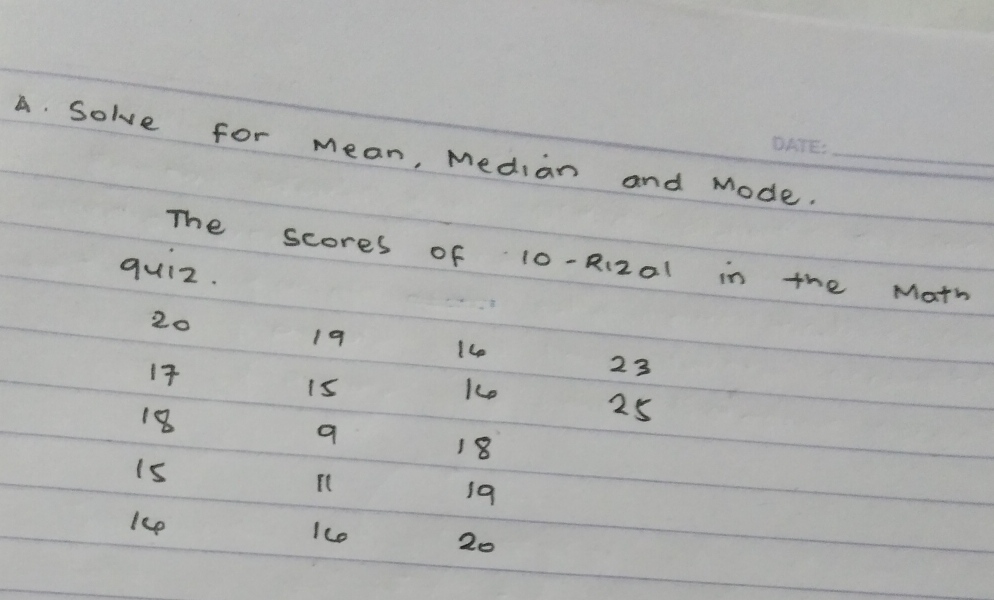 DATE:
A. Solve for Mean, Median and Mode.
The scores of 10-Rizal in the Math
quiz.
20 19 16 23
17 15 16 25
18 9 18
15 11 19
16 16 20